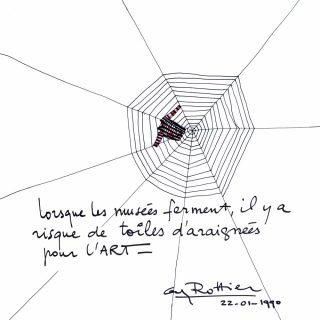 Lorsque les musées ferment, il y a
risque de toîles d'araignées
pour L'ART =
Guy Rottier
22-01-1990